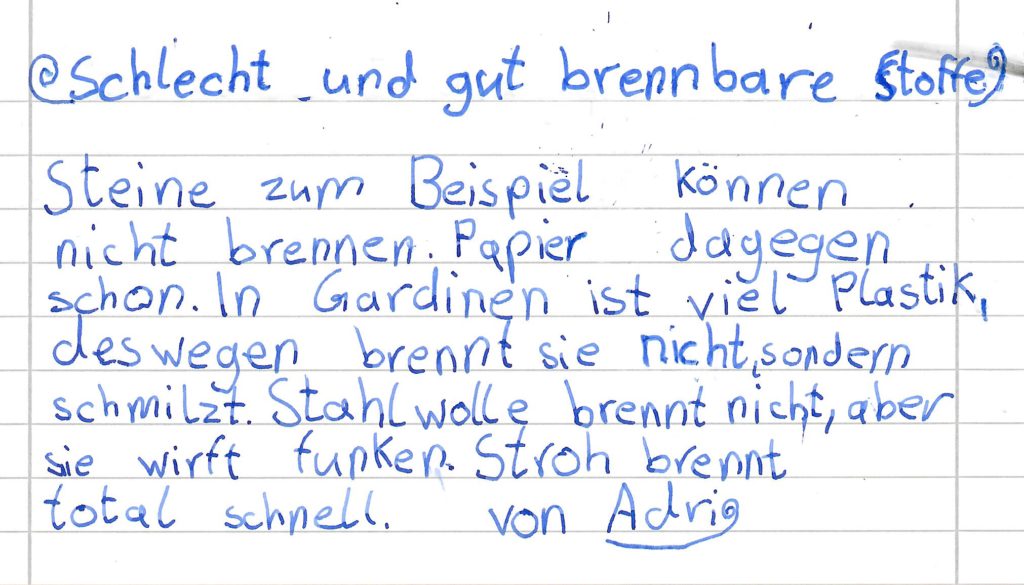 Schlecht und gut brennbare Stoffe
Steine zum Beispiel können
nicht brennen. Papier dagegen
schon. In Gardinen ist viel Plastik,
deswegen brennt sie nicht, sondern
schmilzt. Stahlwolle brennt nicht, aber
sie wirft funken. Stroh brennt
total schnell. von